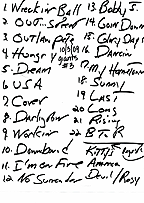 1 Wreckin Ball
2 OUT... Street
3 Outlaw pete
4 Hungry
10/3/09
Giants
#3
5 Dream
6 USA
7 Cover
8 Darlington
9 Workin
10 Downbound
11. I'm on Fire
12 No Surrender
13. Bobby J.
14 Goin Down
15. Glory Days
16 Dancin
17. My Hometown
18. Sunny
19 LAST
20 Long
21 Rising
22 BTR
Kitty's
America
Devil / Rosy